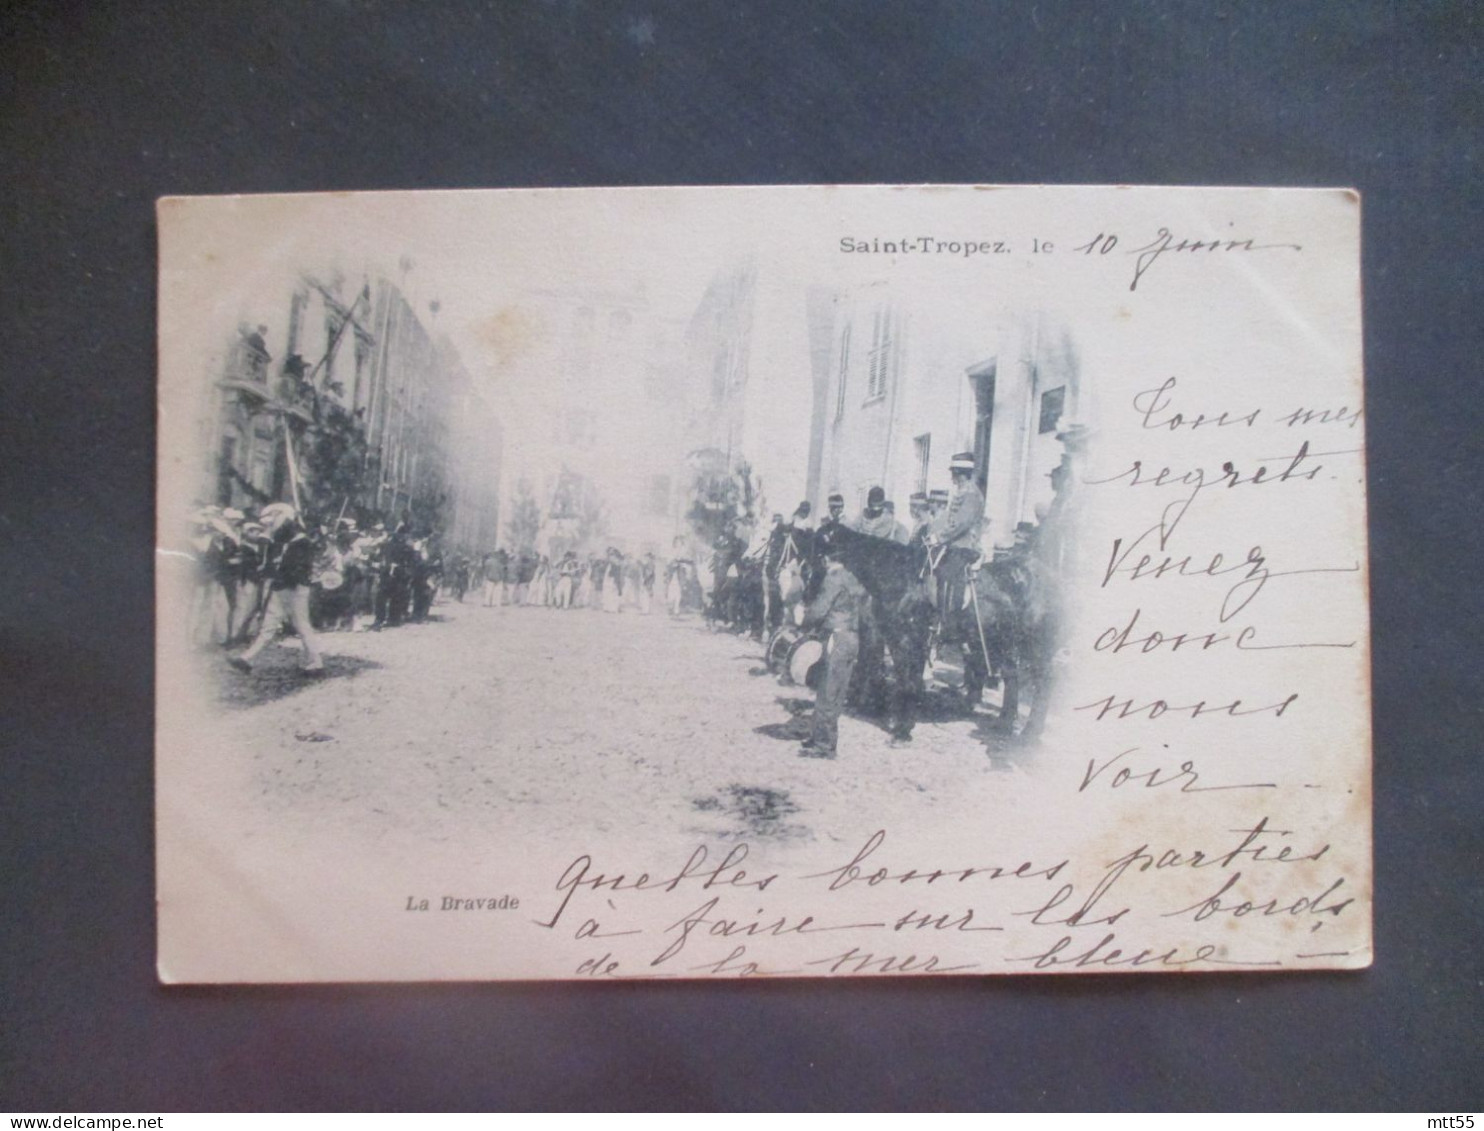 Saint-Tropez, le 10 Juin
Tous mes
regrets.
Venez
donc
nous
voir
La Bravade
Quelles bonnes parties
à faire sur les bords
de la mer bleue
mtt55